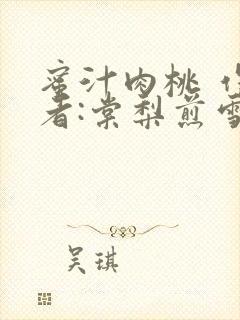 蜜汁肉桃
者:棠梨煎雪
吴琪